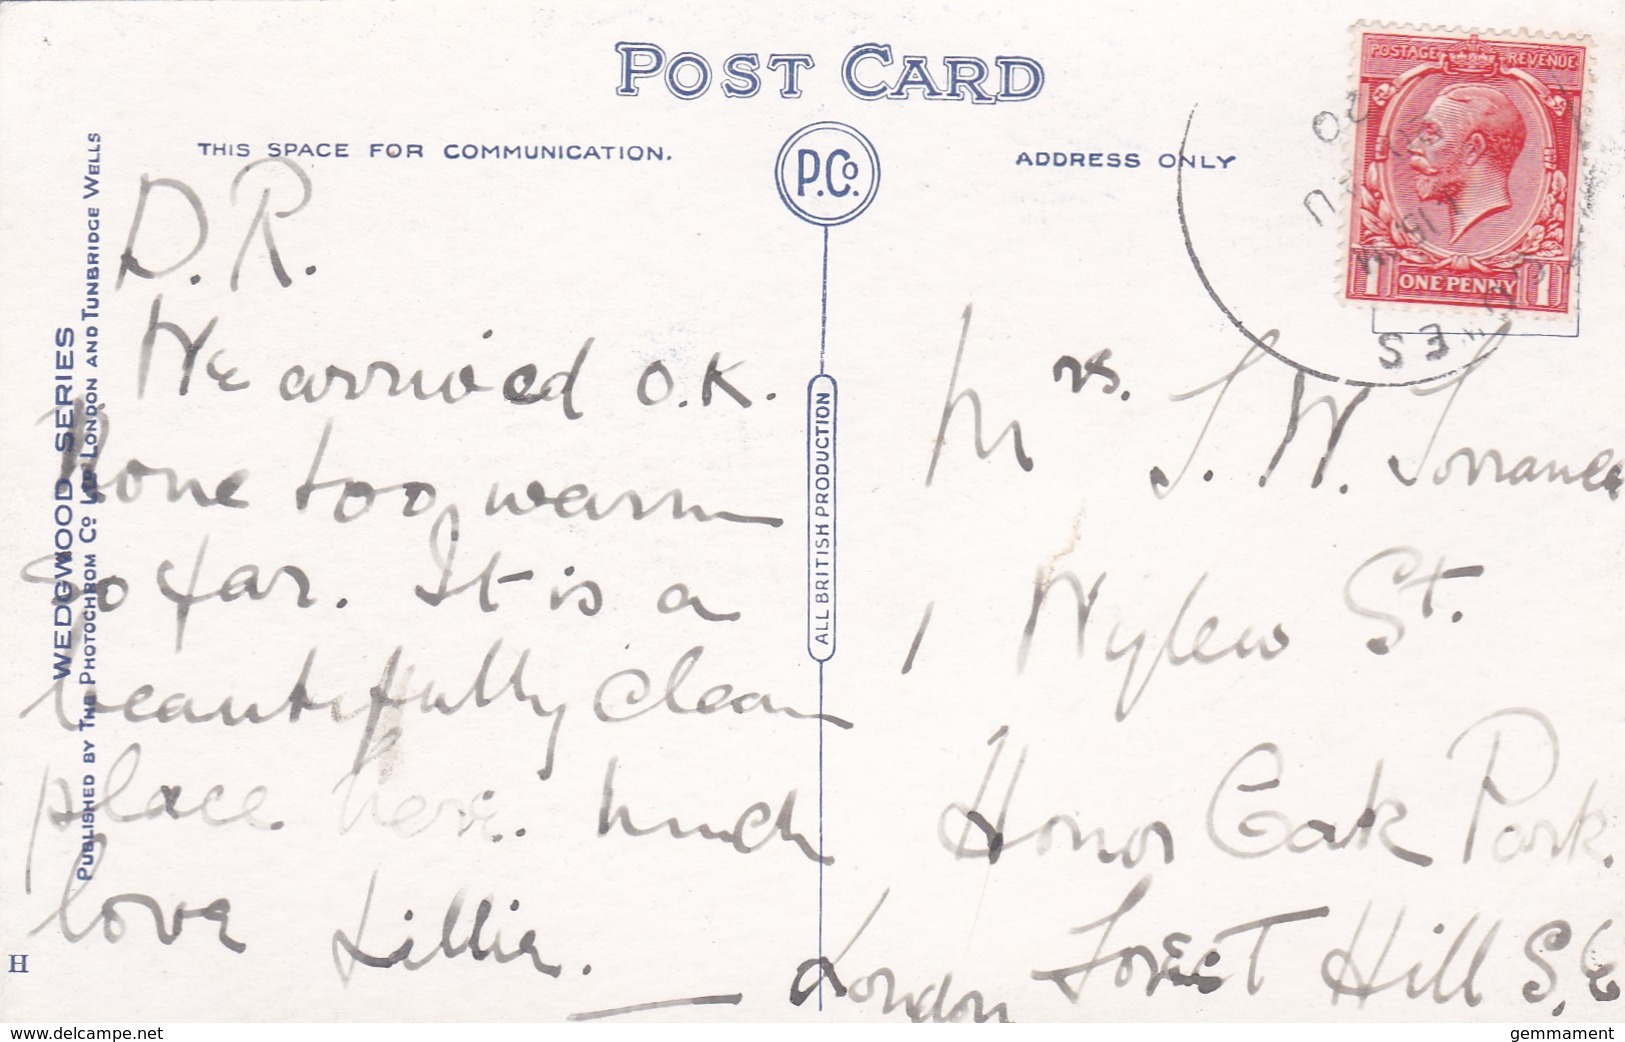 POST CARD
THIS SPACE FOR COMMUNICATION.
P.Co.
ADDRESS ONLY
POSTAGE REVENUE
1 ONE PENNY 1
WEDGWOOD SERIES
PUBLISHED BY THE PHOTOCHROM Co LTD LONDON AND TUNBRIDGE WELLS
ALL BRITISH PRODUCTION
D. R.
We arrived O.K.
None too warm
so far. It is a
beautifully clean
place here. Much
love Lillie.
Mrs. J. W. Torrance
1 Wylew St.
Honor Oak Park.
Forest Hill S.E
London
H
www.delcampe.net
gemmament